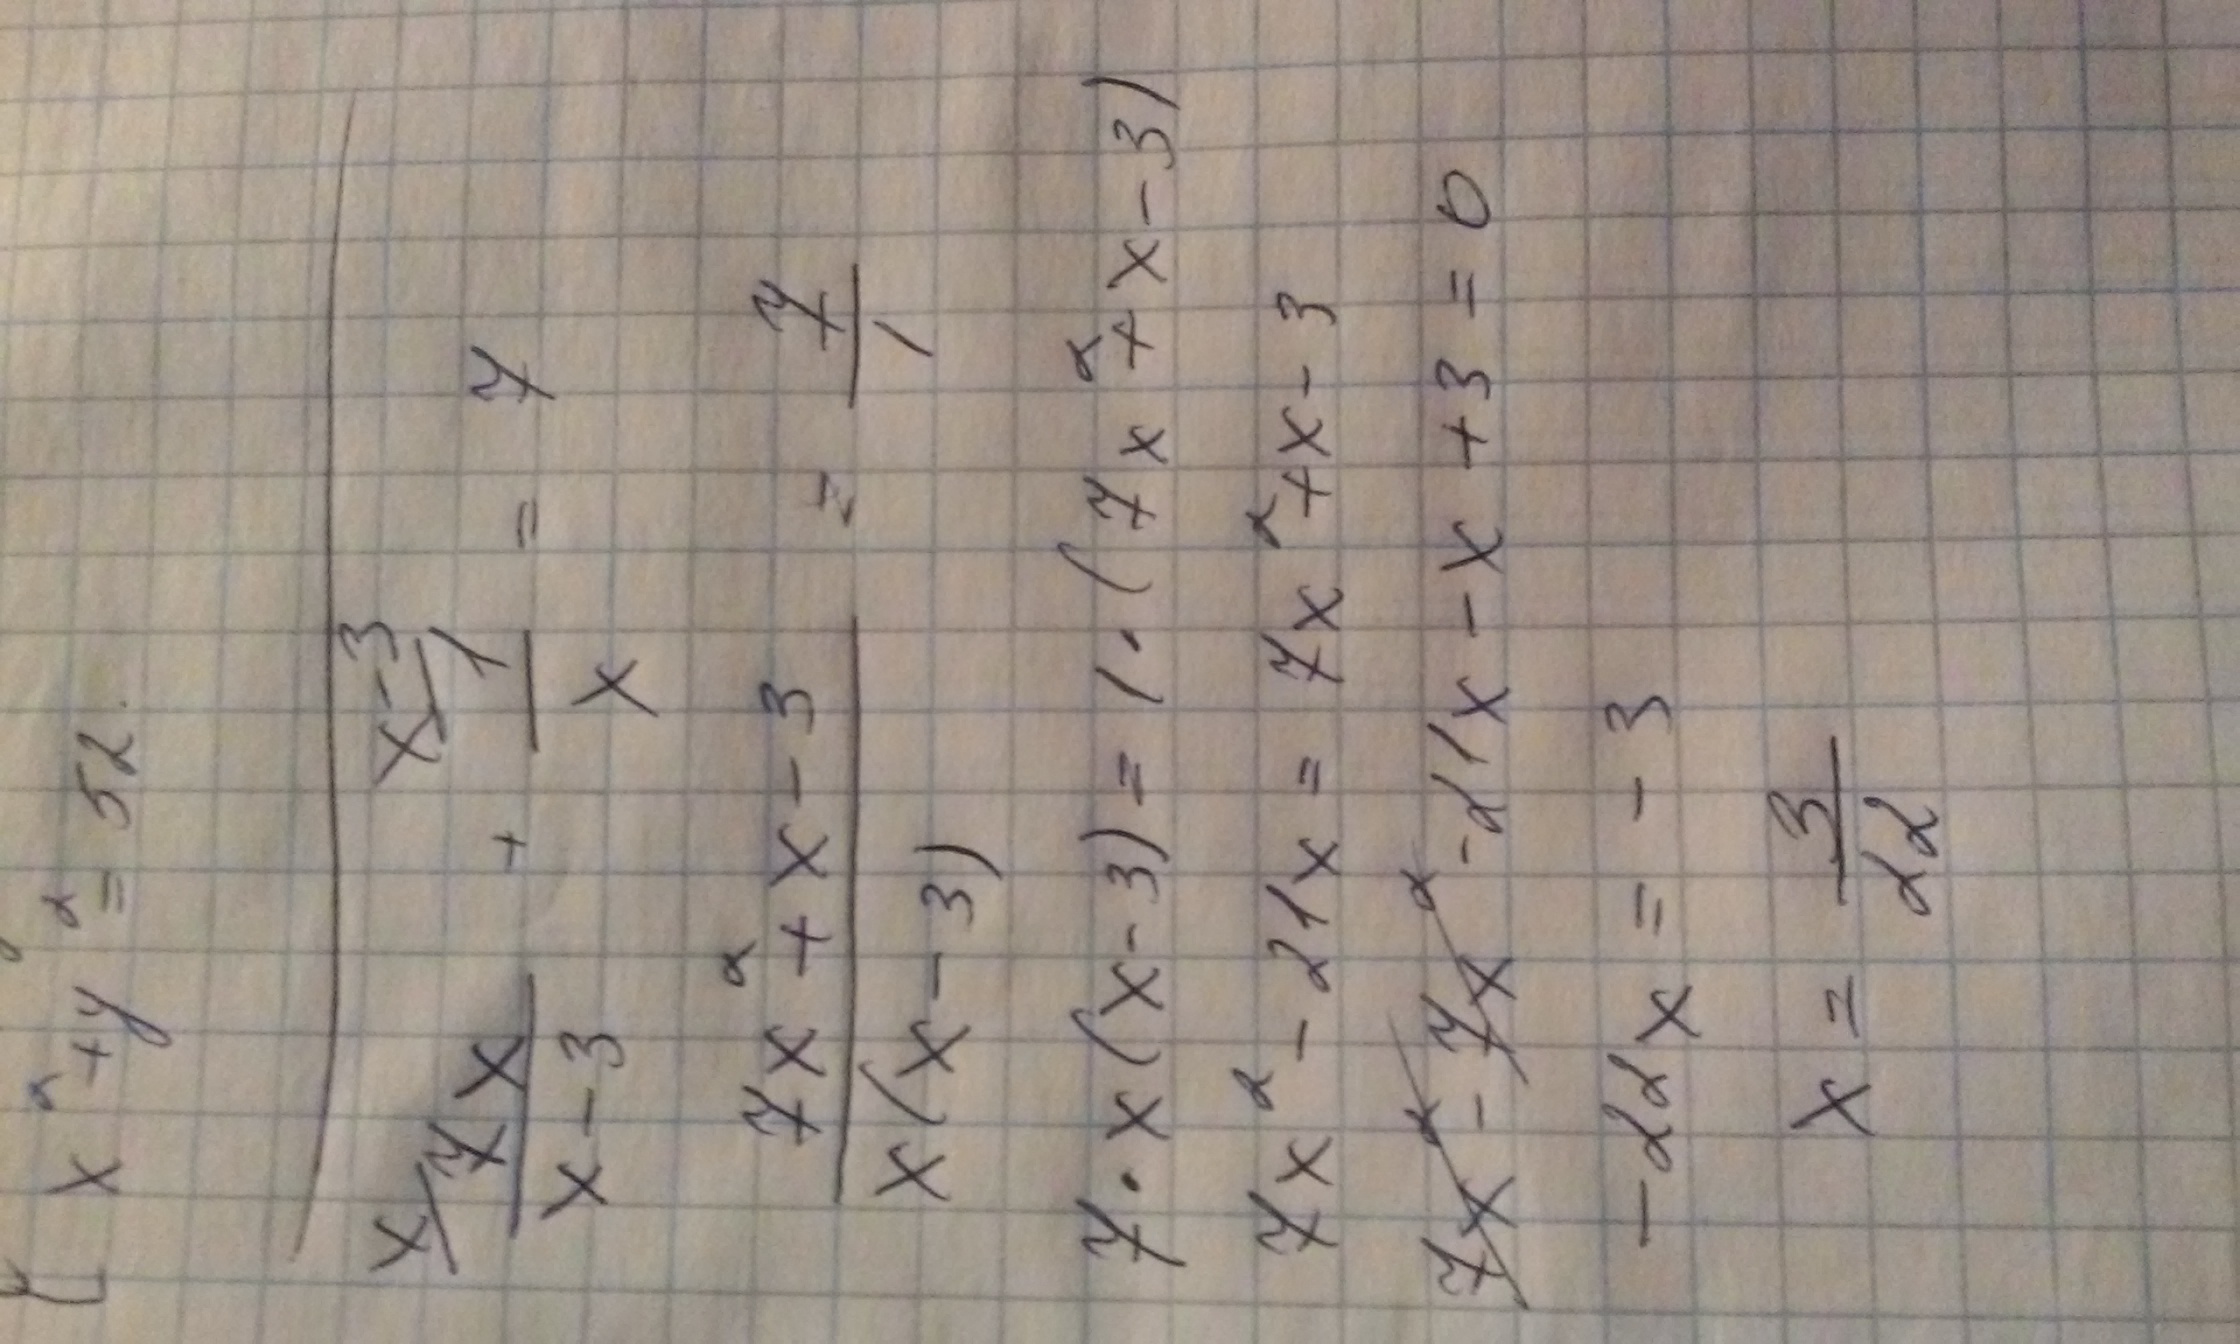 x² + y² = 52.
x/ 7x/(x-3) + x-3/ 1/x = 7
(7x² + x - 3)/(x(x-3)) = 7/1
7·x(x-3) = 1·(7x² + x - 3)
7x² - 21x = 7x² + x - 3
7x² - 7x² - 21x - x + 3 = 0
-22x = -3
x = 3/22